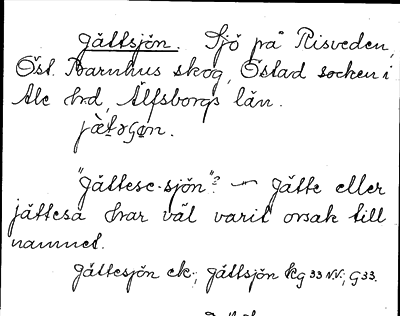 Jättsjön. Sjö på Risveden,
Öst. Barnhus skog, Östad socken i
Ale hrd, Älfsborgs län.
"Jättese-sjön"? — Jätte eller
jättesa har väl varit orsak till
namnet.
Jättesjön ek.; Jättsjön Kg 33 NV.; G 33.